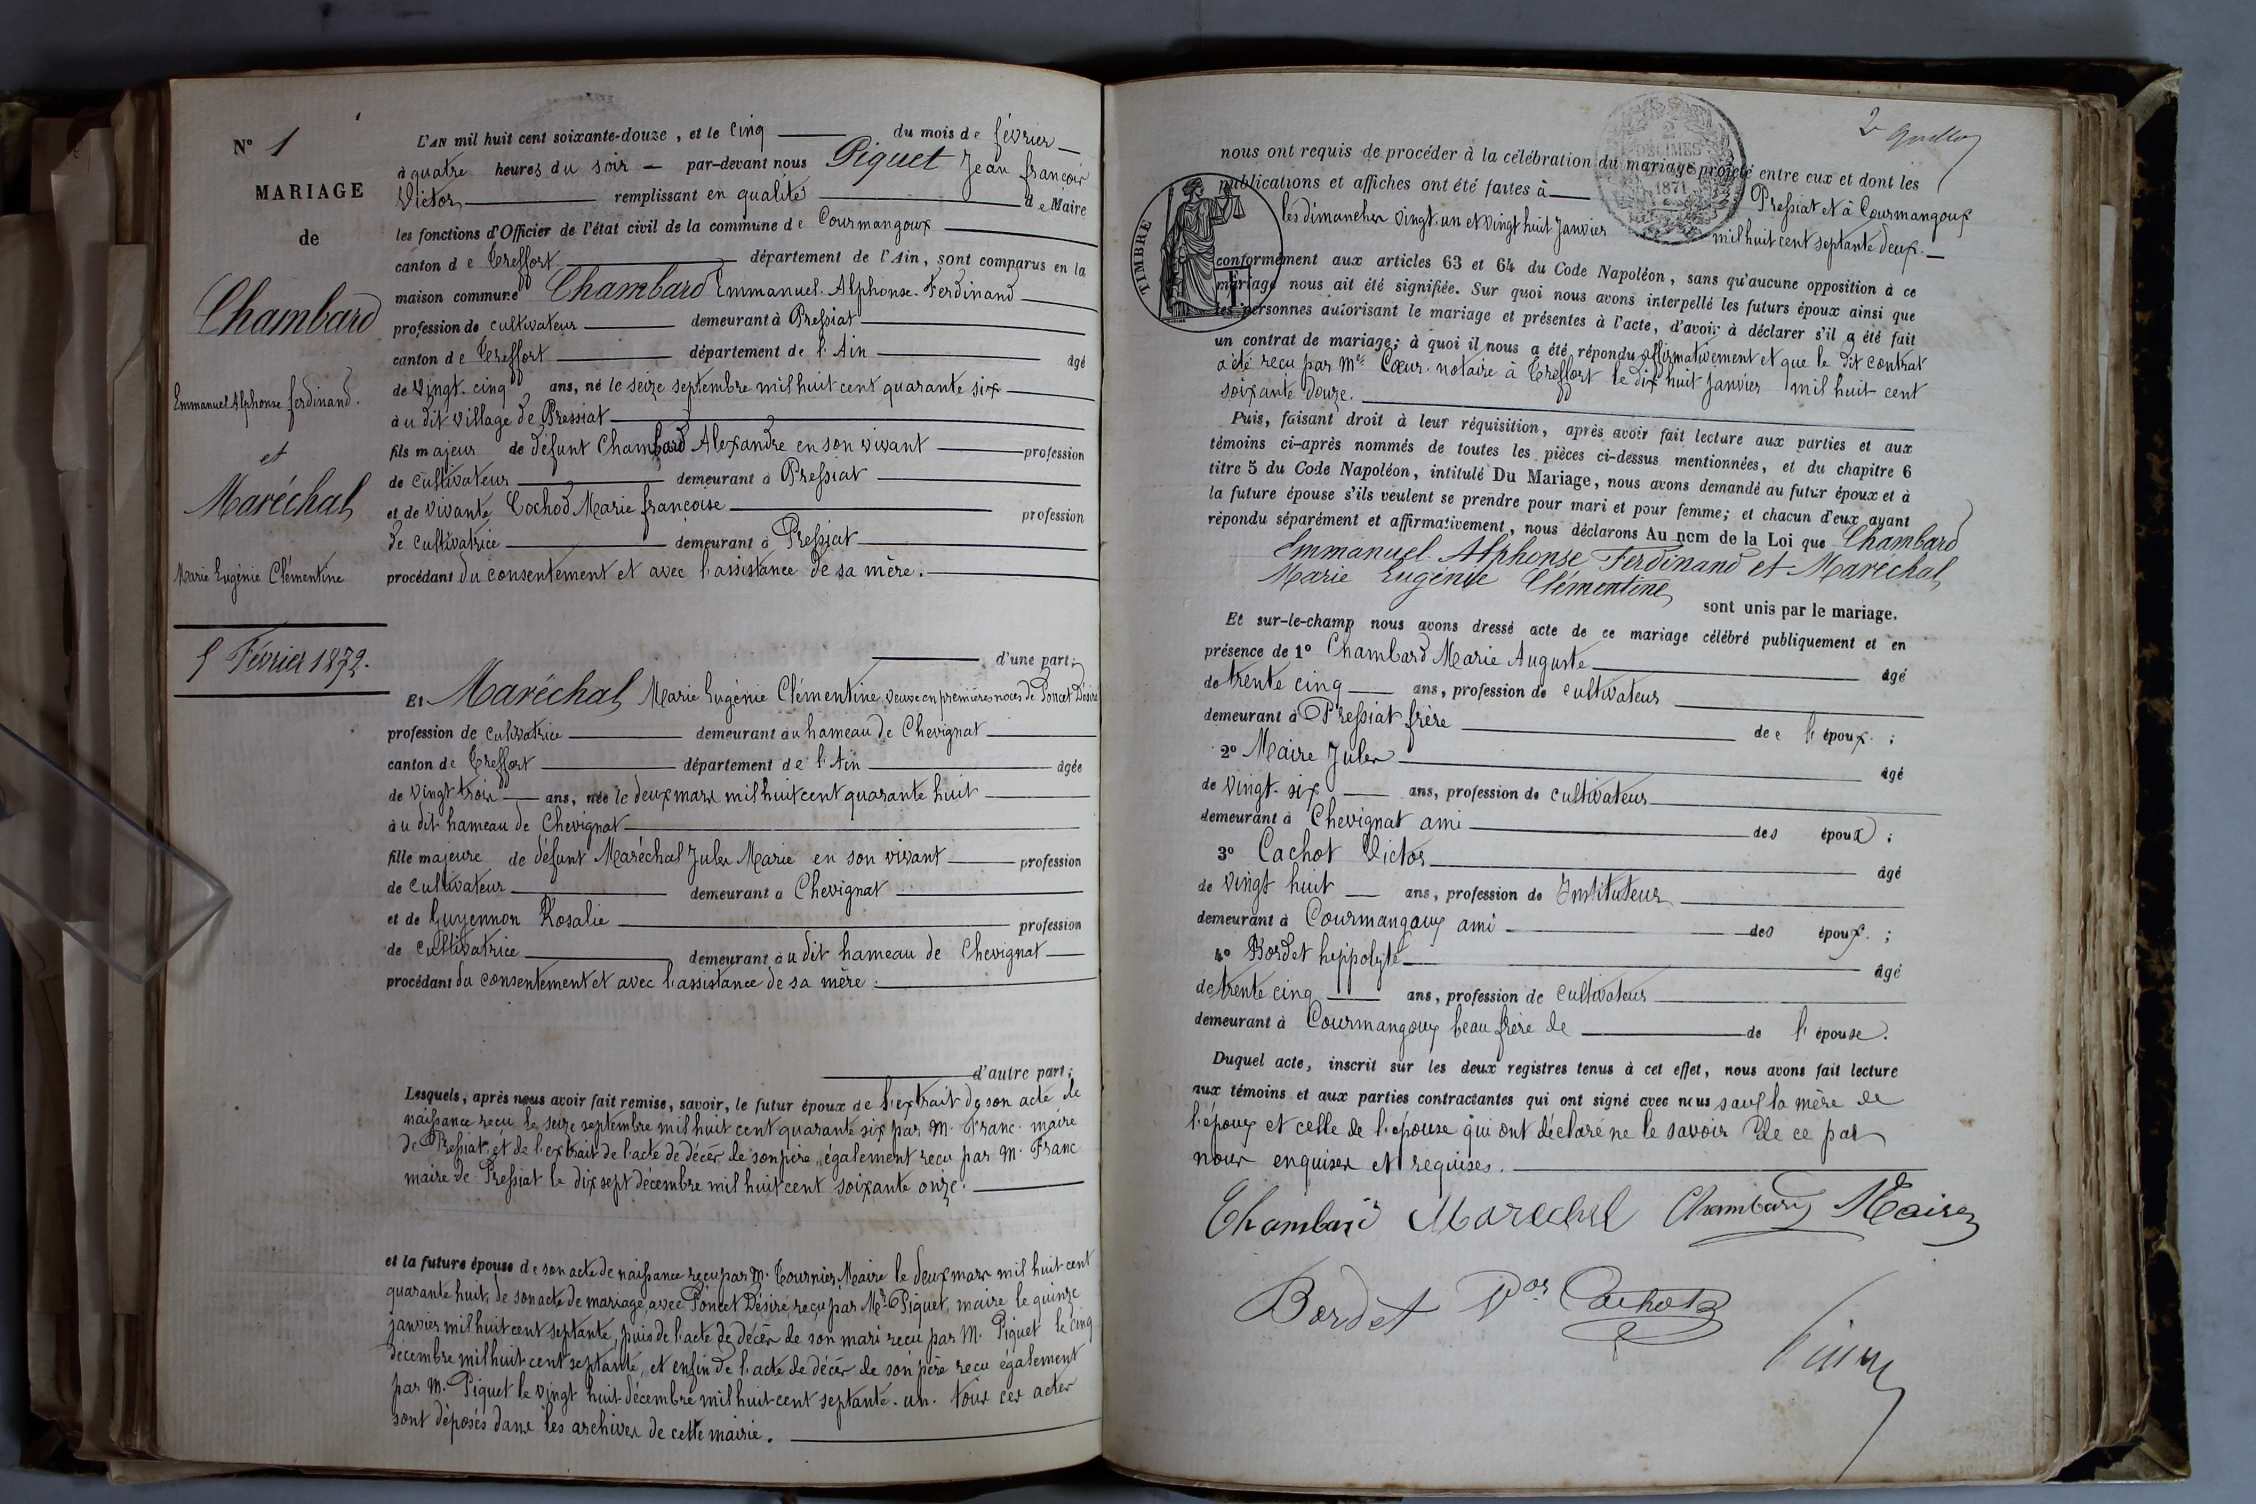 N° 1
MARIAGE
de
Chambard
Emmanuel Alphonse ferdinand.
et
Maréchal
Marie Eugénie Clémentine
5 Février 1872.
L'AN mil huit cent soixante-douze, et le cinq du mois de février
à quatre heures du soir par-devant nous Piquet Jean françois
Victor remplissant en qualité de Maire
les fonctions d'Officier de l'état civil de la commune de Courmangoux
canton de Treffort département de l'Ain, sont comparus en la
maison commune Chambard Emmanuel. Alphonse. Ferdinand
profession de cultivateur demeurant à Pressiat
canton de Treffort département de l'Ain âgé
de vingt. cinq ans, né le seize septembre mil huit cent quarante six
au dit village de Pressiat
fils majeur de défunt Chambard Alexandre en son vivant profession
de cultivateur demeurant à Pressiat
et de vivante Cochod Marie françoise profession
de cultivatrice demeurant à Pressiat
procédant du consentement et avec l'assistance de sa mère.
d'une part;
Et Maréchal Marie Eugénie Clémentine, veuve en premières noces de Poncet Désiré
profession de cultivatrice demeurant au hameau de Chevignat
canton de Treffort département de l'Ain âgée
de vingt trois ans, née le deux mars mil huit cent quarante huit
au dit hameau de Chevignat
fille majeure de défunt Maréchal Jules Marie en son vivant profession
de cultivateur demeurant à Chevignat
et de Guyennon Rosalie profession
de cultivatrice demeurant au dit hameau de Chevignat
procédant du consentement et avec l'assistance de sa mère.
d'autre part;
Lesquels, après nous avoir fait remise, savoir, le futur époux de l'extrait de son acte de
naissance reçu le seize septembre mil huit cent quarante six par M. Franc. maire
de Pressiat, et de l'extrait de l'acte de décès de son père, également reçu par M. Franc
maire de Pressiat le dix sept décembre mil huit cent soixante onze.
et la future épouse de son acte de naissance reçu par M. Tournier, Maire le deux mars mil huit cent
quarante huit, de son acte de mariage avec Poncet Désiré reçu par Mr Piquet, maire le quinze
janvier mil huit cent septante, puis de l'acte de décès de son mari reçu par M. Piquet le cinq
décembre mil huit cent septante, et enfin de l'acte de décès de son père reçu également
par M. Piquet le vingt huit décembre mil huit cent septante. un. tous ces actes
sont déposés dans les archives de cette mairie.
2
nous ont requis de procéder à la célébration du mariage projeté entre eux et dont les
publications et affiches ont été faites à Pressiat et à Courmangoux
les dimanches vingt. un et vingt huit Janvier mil huit cent septante deux.
conformément aux articles 63 et 64 du Code Napoléon, sans qu'aucune opposition à ce
mariage nous ait été signifiée. Sur quoi nous avons interpellé les futurs époux ainsi que
les personnes autorisant le mariage et présentes à l'acte, d'avoir à déclarer s'il a été fait
un contrat de mariage; à quoi il nous a été répondu affirmativement et que le dit contrat
a été reçu par Me Cœur. notaire à Treffort le dix huit Janvier mil huit cent
soixante douze.
Puis, faisant droit à leur réquisition, après avoir fait lecture aux parties et aux
témoins ci-après nommés de toutes les pièces ci-dessus mentionnées, et du chapitre 6
titre 5 du Code Napoléon, intitulé Du Mariage, nous avons demandé au futur époux et à
la future épouse s'ils veulent se prendre pour mari et pour femme; et chacun d'eux ayant
répondu séparément et affirmativement, nous déclarons Au nom de la Loi que Chambard
Emmanuel. Alphonse Ferdinand et Maréchal
Marie Eugénie Clémentine
sont unis par le mariage.
Et sur-le-champ nous avons dressé acte de ce mariage célébré publiquement et en
présence de 1° Chambard Marie Auguste âgé
de trente cinq ans, profession de cultivateur
demeurant à Pressiat frère de l'époux.;
2° Maire Jules âgé
de vingt. six ans, profession de cultivateur
demeurant à Chevignat ami des époux;
3° Cachot Victor âgé
de vingt huit ans, profession de Instituteur
demeurant à Courmangoux ami des époux.;
4° Bordet hippolyte âgé
de trente cinq ans, profession de cultivateur
demeurant à Courmangoux beau frère de de l'épouse.
Duquel acte, inscrit sur les deux registres tenus à cet effet, nous avons fait lecture
aux témoins et aux parties contractantes qui ont signé avec nous sauf la mère de
l'époux et celle de l'épouse qui ont déclaré ne le savoir de ce par
nous enquises et requises.
Chambard Marechal Chambard Maire
Bordet Vor Cachot
TIMBRE
1871